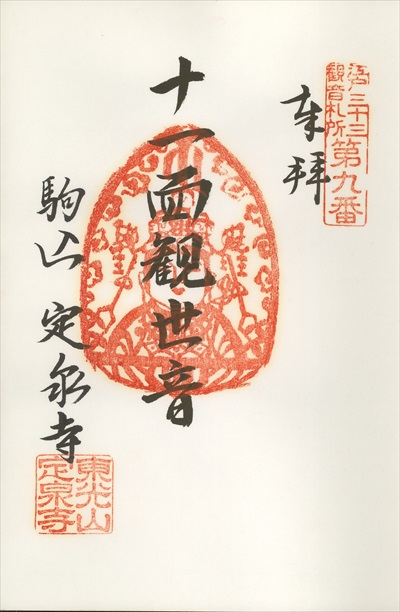 江戸三十三
観音札所
第九番
奉拝
十一面観世音
駒込 定泉寺
東光山
定泉寺